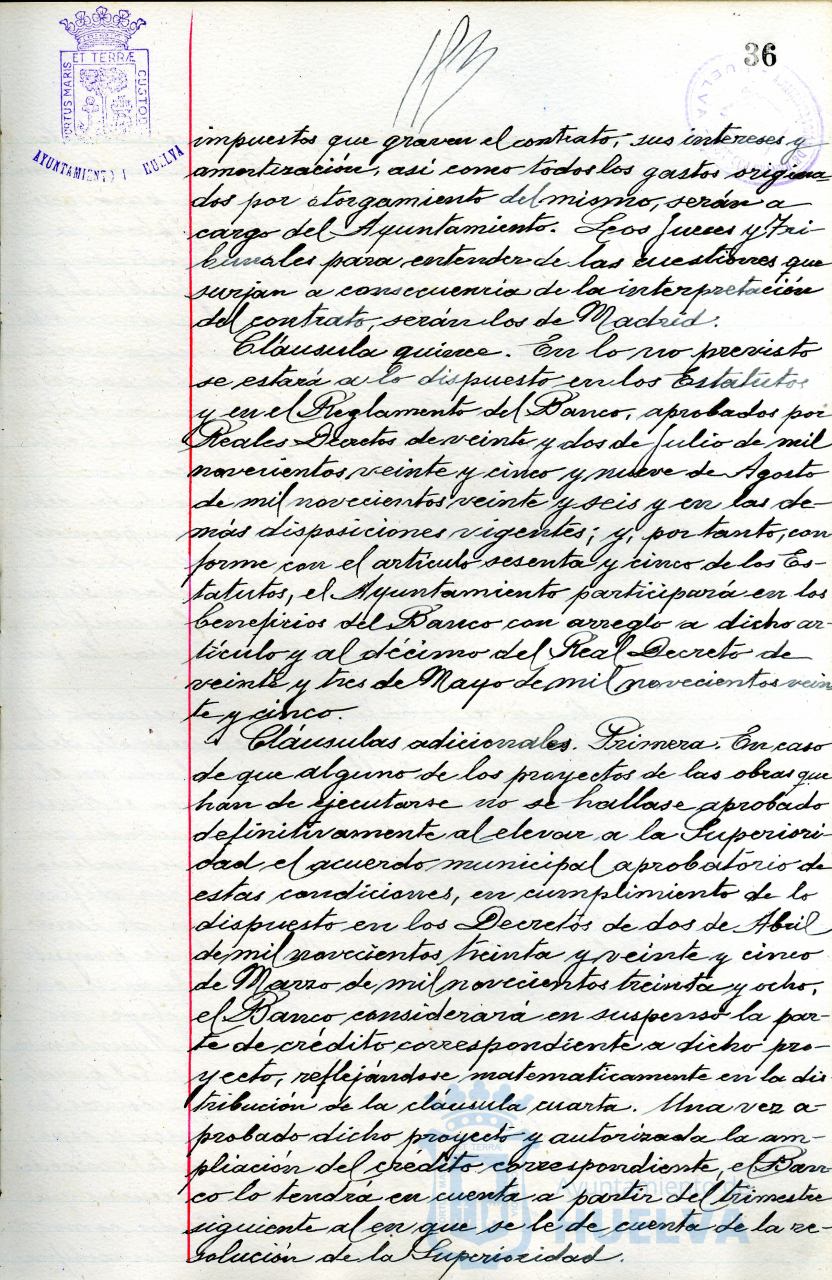 36
113
ET TERRÆ
PORTUS MARIS
CUSTOD
AYUNTAMIENTO HUELVA
impuestos que graven el contrato, sus intereses y
amortización, así como todos los gastos origina-
dos por otorgamiento del mismo, serán a
cargo del Ayuntamiento. Los Jueces y Tri-
bunales para entender de las cuestiones que
surjan a consecuencia de la interpretación
del contrato, serán los de Madrid.
Cláusula quince. En lo no previsto
se estará a lo dispuesto en los Estatutos
y en el Reglamento del Banco, aprobados por
Reales Decretos de veinte y dos de Julio de mil
novecientos veinte y cinco y nueve de Agosto
de mil novecientos veinte y seis y en las de-
más disposiciones vigentes; y, por tanto, con
forme con el artículo sesenta y cinco de los Es-
tatutos, el Ayuntamiento participará en los
beneficios del Banco con arreglo a dicho ar-
tículo y al décimo del Real Decreto de
veinte y tres de Mayo de mil novecientos vein
te y cinco.
Cláusulas adicionales. Primera. En caso
de que alguno de los proyectos de las obras que
han de ejecutarse no se hallase aprobado
definitivamente al elevar a la Superiori-
dad el acuerdo municipal aprobatorio de
estas condiciones, en cumplimiento de lo
dispuesto en los Decretos de dos de Abril
de mil novecientos treinta y veinte y cinco
de Marzo de mil novecientos treinta y ocho,
el Banco considerará en suspenso la par-
te de crédito correspondiente a dicho pro-
yecto, reflejándose matematicamente en la dis
tribución de la cláusula cuarta. Una vez a-
probado dicho proyecto y autorizada la am-
pliación del crédito correspondiente, el Ban-
co lo tendrá en cuenta a partir del trimestre
siguiente al en que se le de cuenta de la re-
solución de la Superioridad.
Ayuntamiento de
HUELVA